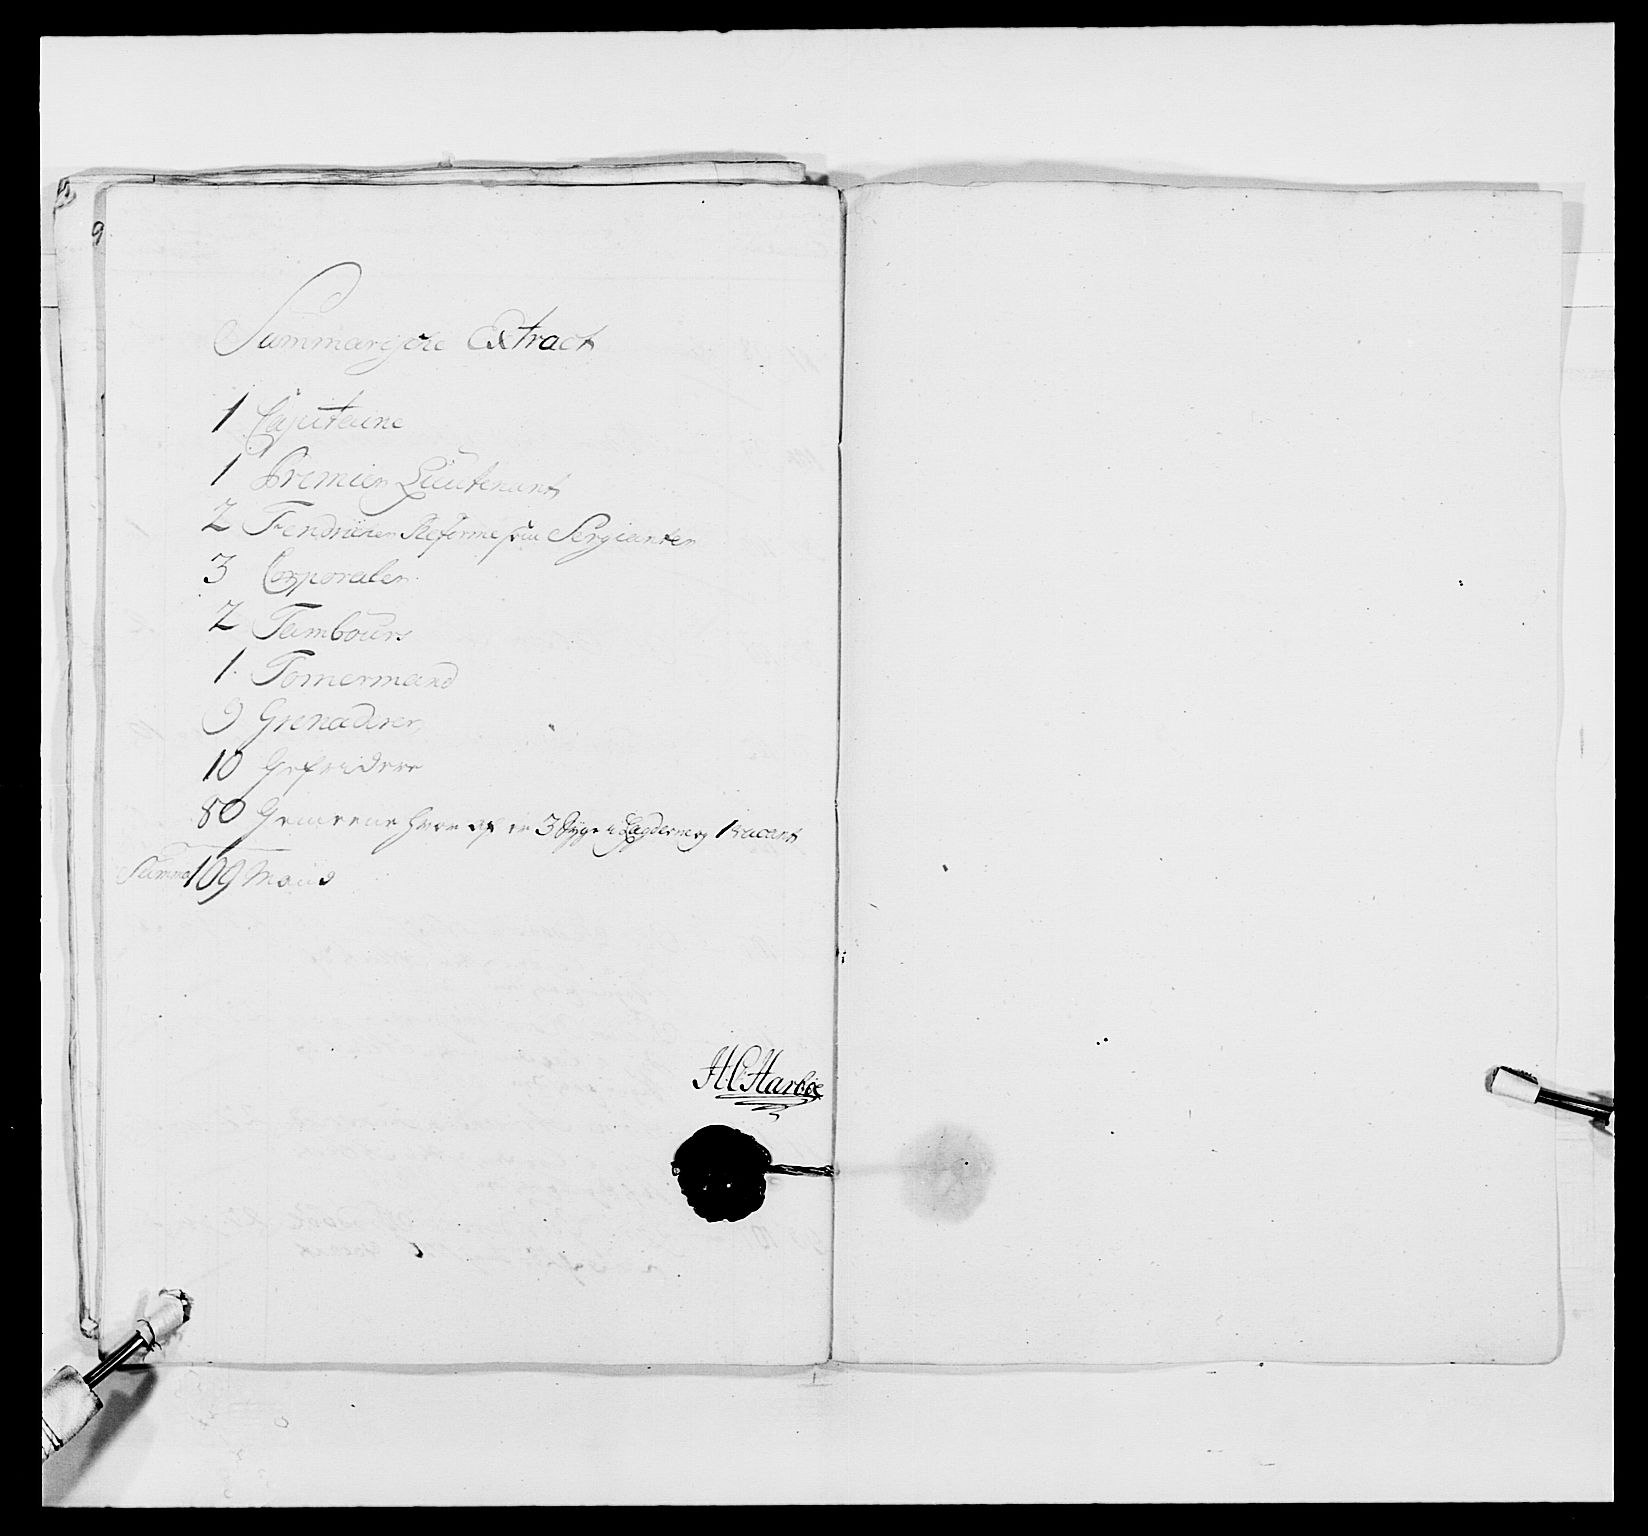 Summarische Extract
1 Capitaine
1 Premier Lieutenant
2 Fendricher Reforme som Sergianter
3 Corporaler
2 Tambours
1. Tomermand
9 Grenaderer
10 Gefridere
80 Gemeene hvor af er 3 Syge i Lagderne og 1 vacant
Summa 109 Mand
HCHarboe